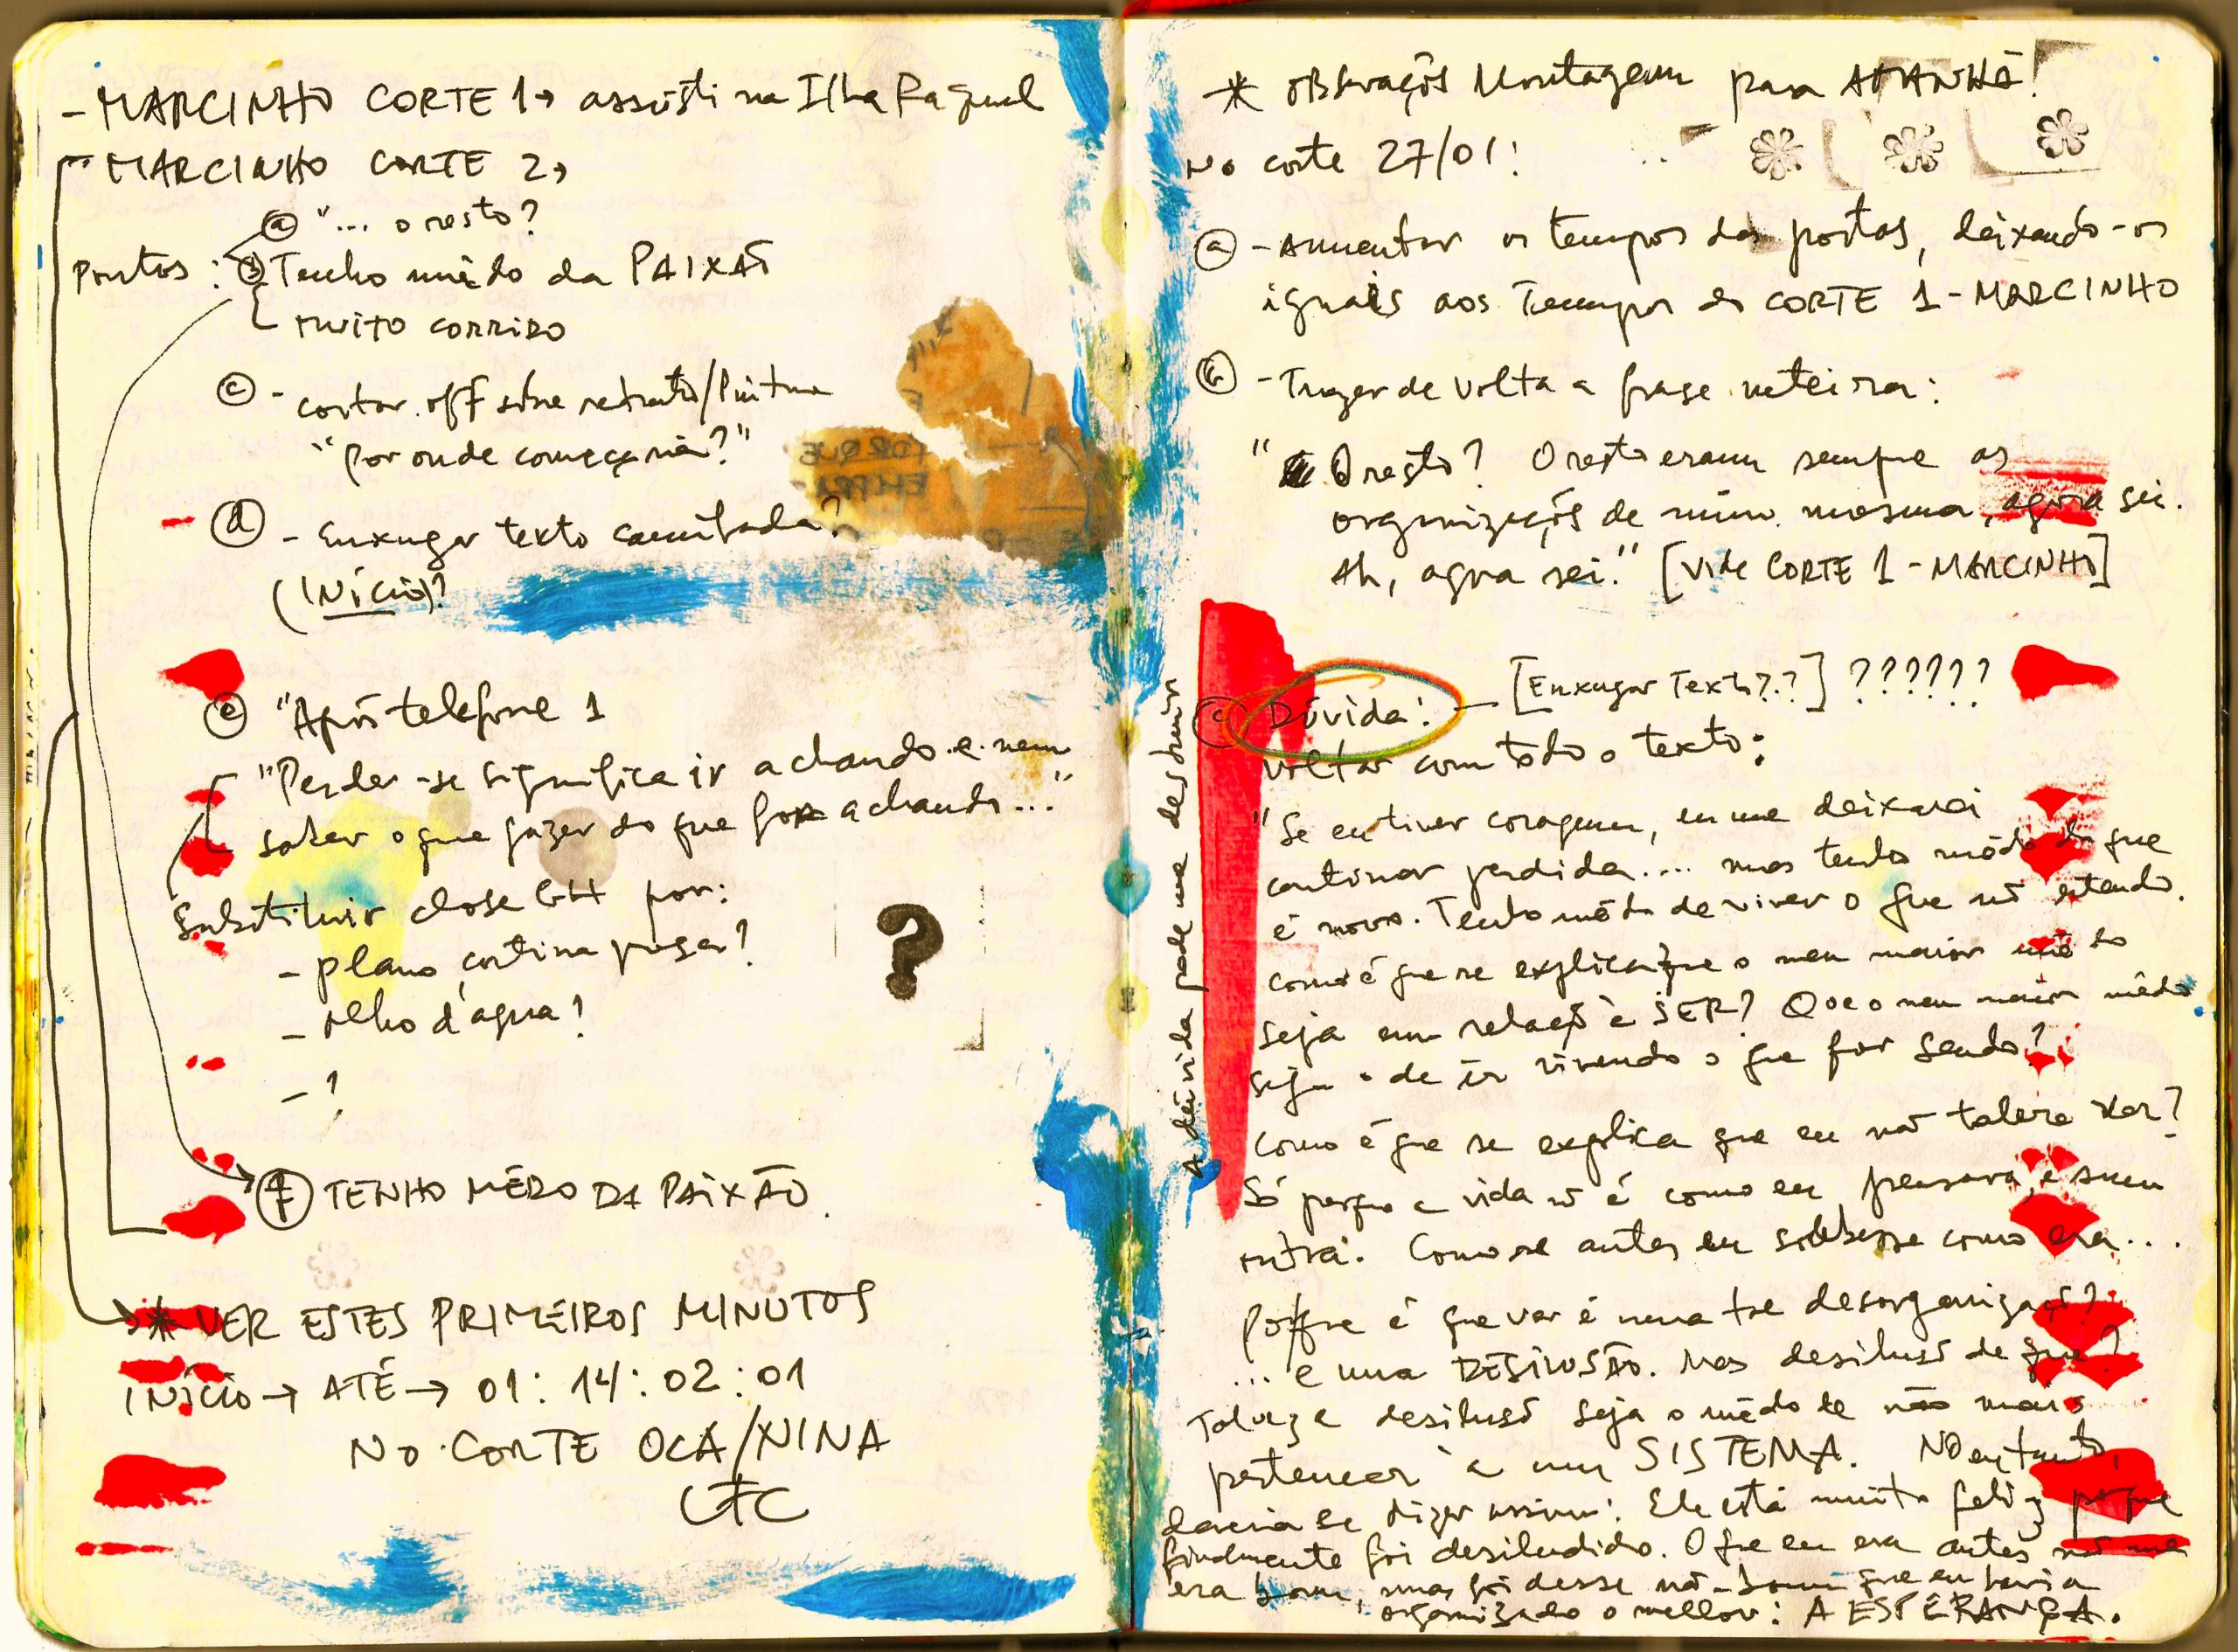 - MARCINHO CORTE 1→ assisti na Ilha Raquel
- MARCINHO CORTE 2→
ⓐ "... o resto?
Pontos: ⓑ Tenho mêdo da PAIXÃO
MUITO CORRIDO
ⓒ - cortar off sobre retrato/Pintura
"Por onde começaria?"
ⓓ - Enxugar texto camuflada?
(INÍCIO)?
ⓔ "Após telefone 1
"Perder-se significa ir achando e nem
saber o que fazer do que for achando..."
Substituir close GH por:
- plano cortina
- olho d'agua?
- ?
?
ⓕ TENHO MÊDO DA PAIXÃO.
* VER ESTES PRIMEIROS MINUTOS
INÍCIO → ATÉ → 01:14:02:01
NO CORTE OCA/NINA
LFC
A dúvida pode me destruir
* OBServações Montagem para AMANHÃ!
No corte 27/01:
ⓐ - Aumentar os tempos das portas, deixando-os
iguais aos Tempos do CORTE 1 - MARCINHO
ⓑ - Trazer de volta a frase inteira:
" O resto? O resto eram sempre as
organizações de mim mesma, agora sei.
Ah, agora sei." [vide CORTE 1 - MARCINHO]
ⓒ Dúvida: - [Enxugar Texto??] ??????
voltar com todo o texto:
"Se eu tiver coragem, eu me deixarei
continuar perdida.... mas tenho mêdo do que
é novo. Tenho mêdo de viver o que não entendo.
como é que se explica que o meu maior mêdo
seja em relação à SER? Que o meu maior mêdo
seja o de ir vivendo o que for sendo?
Como é que se explica que eu não tolere ver?
Só porque a vida não é como eu pensava, e sim
outra. Como se antes eu soubesse como era...
Porque é que ver é uma tal desorganização?
... e uma DESILUSÃO. Mas desilusão de que?
Talvez a desilusão seja o mêdo de não mais
pertencer à um SISTEMA. No entanto,
deveria se dizer assim: Ele está muito feliz porque
finalmente foi desiludido. O que eu era antes não me
era bom, mas foi desse não-bom que eu havia
organizado o melhor: A ESPERANÇA.